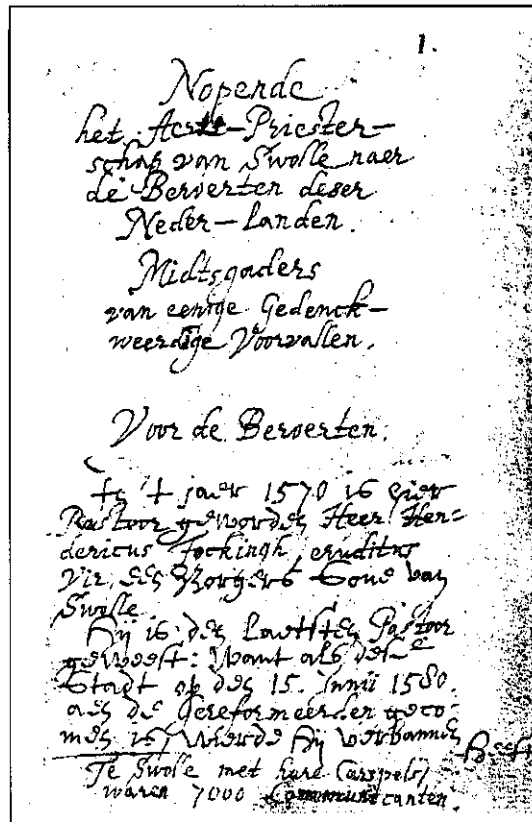 1.
Nopende
het Aerts-Priester-
schap van Swolle naer
de Beroerten deser
Neder-landen.
Midtsgaders
van eenige Gedenck-
weerdige Voorvallen.
Voor de Beroerten.
In 't jaer 1570 is hier
Pastoor geworden Heer Hen-
dericus Fockingh, eruditus
Vir, een Borgers Sone van
Swolle.
Hij is den laetsten Pastoor
geweest: Want als dese
Stadt op den 15. Junii 1580.
aen de Gereformeerden geco-
men is, wierde hij verbannen
Heeft
Te Swolle met hare Carspels,
waren 7000 Communicanten.